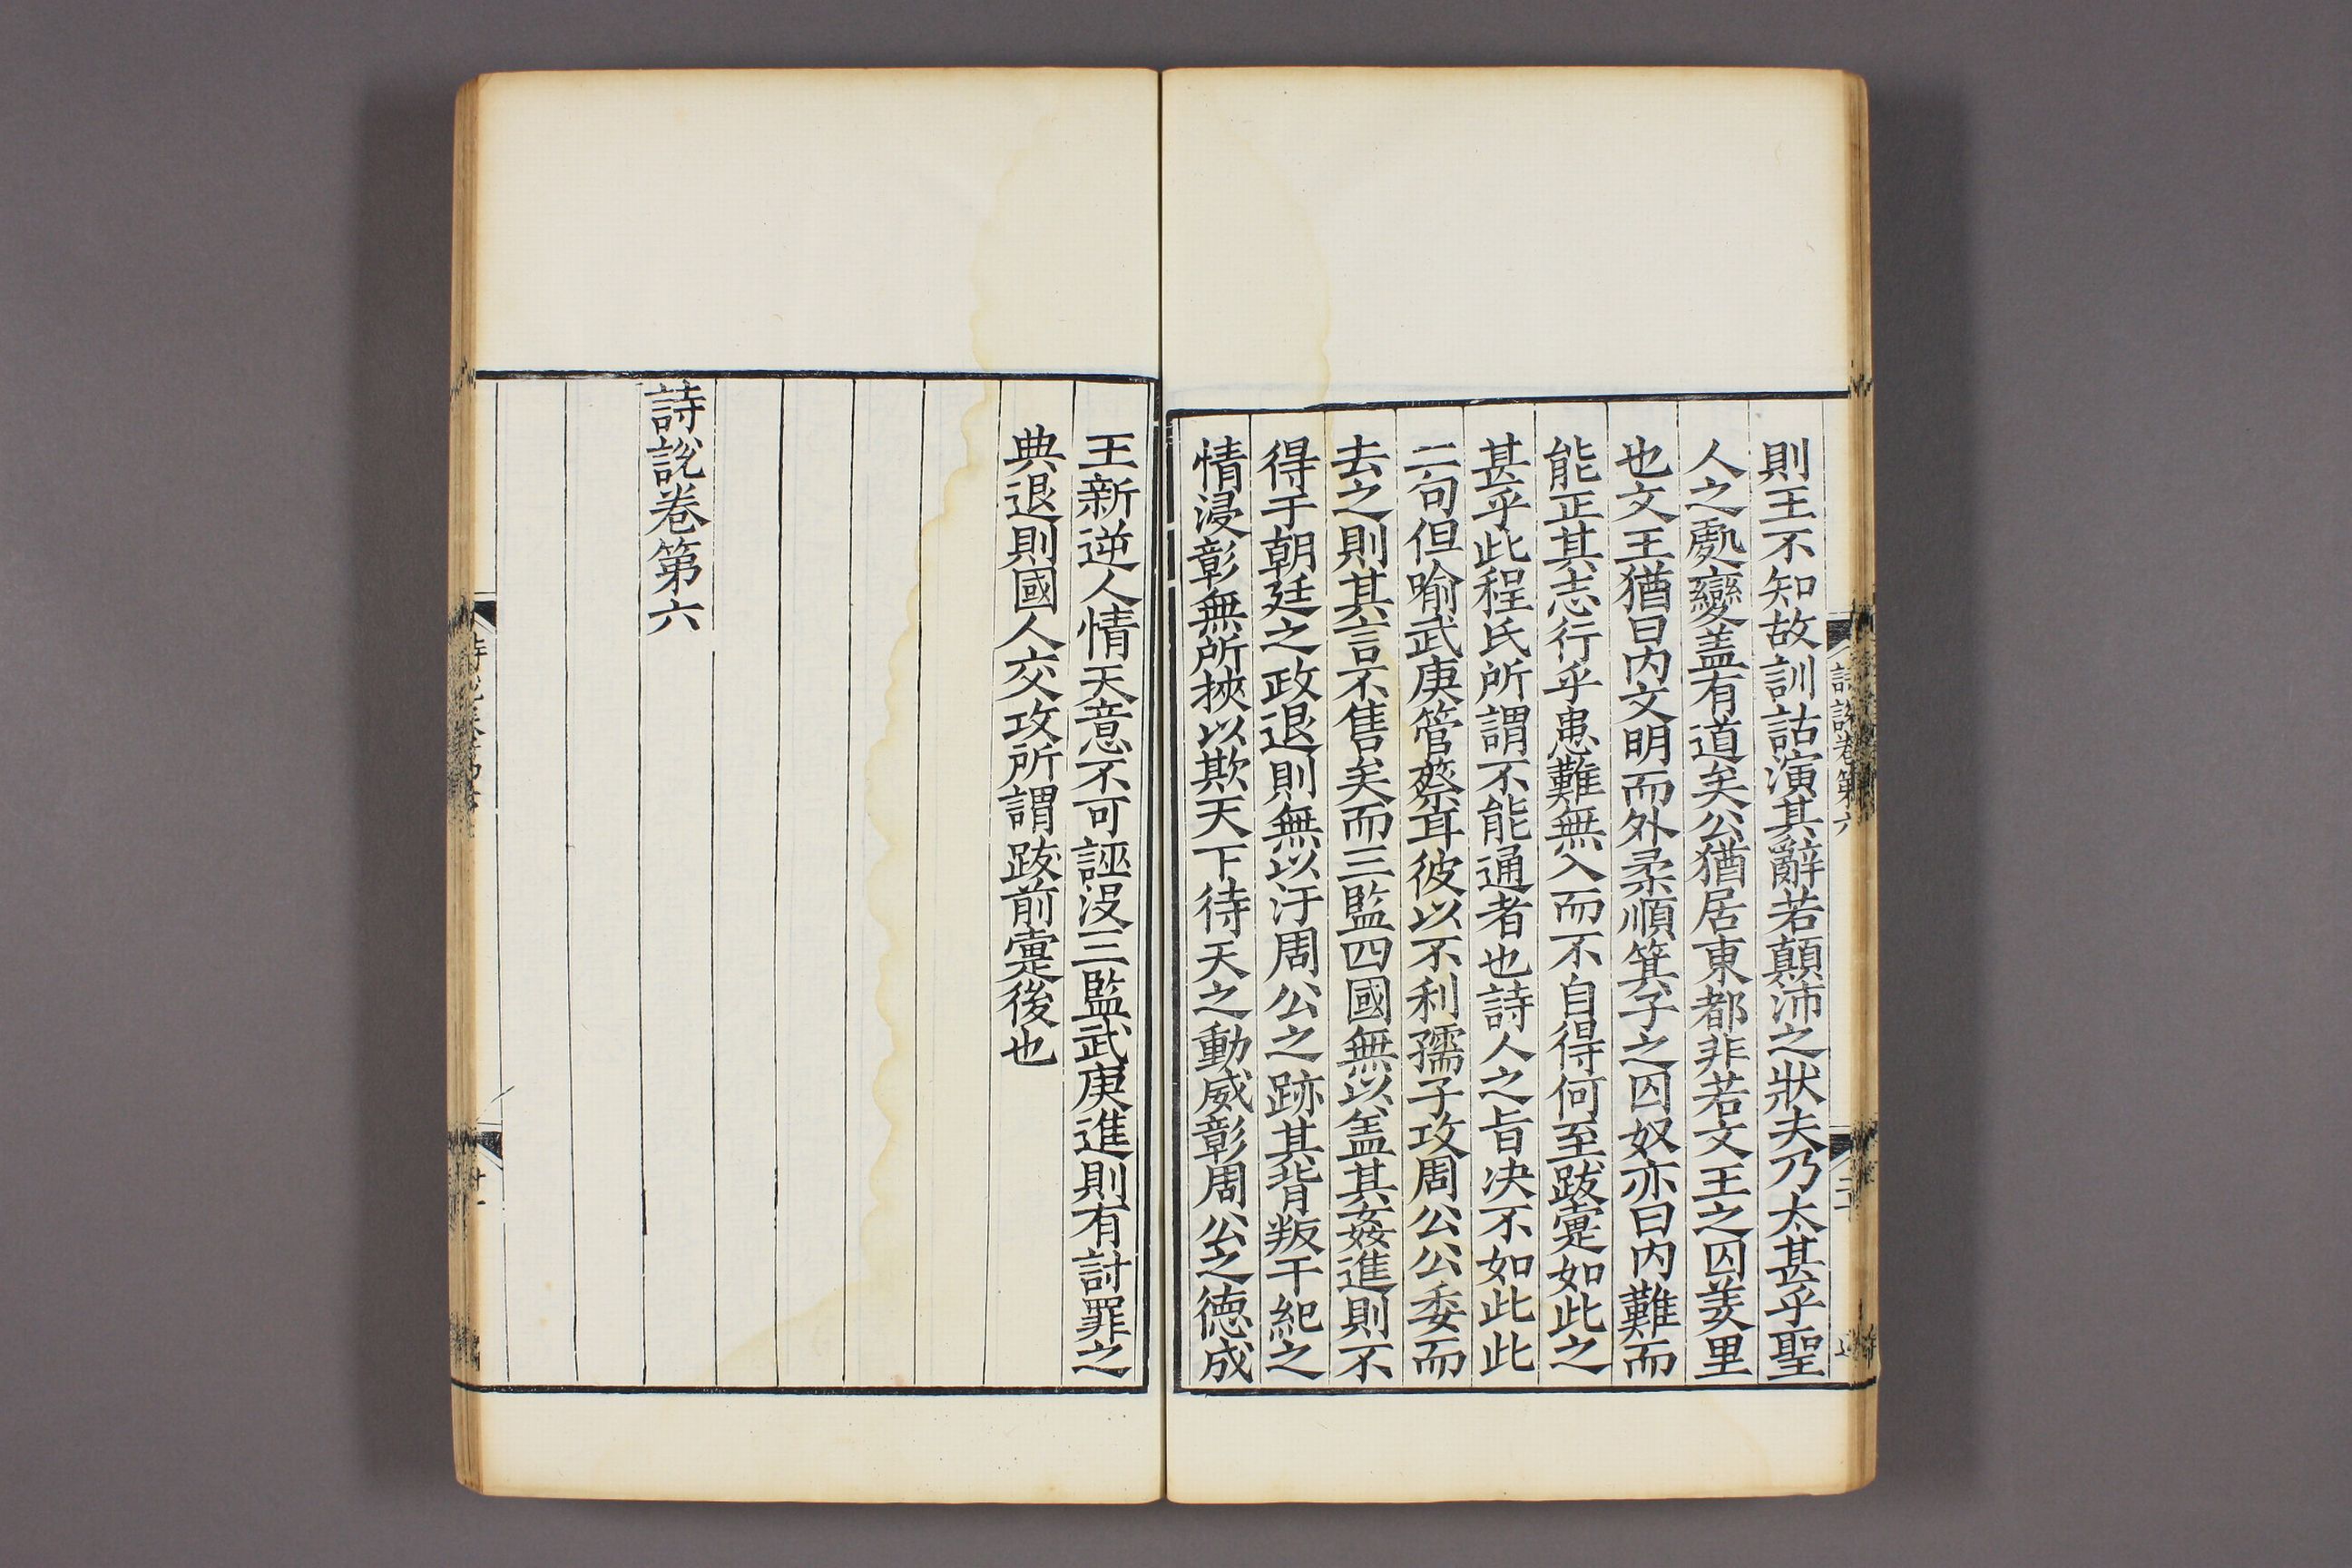 則王不知故訓詁演其辭若顛沛之狀夫乃太甚乎聖
人之處變盖有道矣公猶居東都非若文王之囚羑里
也文王猶曰内文明而外柔順箕子之囚奴亦曰内難而
能正其志行乎患難無入而不自得何至跋疐如此之
甚乎此程氏所謂不能通者也詩人之旨决不如此此
二句但喻武庚管蔡耳彼以不利孺子攻周公公委而
去之則其言不售矣而三監四國無以盖其姦進則不
得于朝廷之政退則無以汙周公之跡其背叛干紀之
情浸彰無所挾以欺天下待天之動威彰周公之德成
王新逆人情天意不可誣没三監武庚進則有討罪之
典退則國人交攻所謂跋前疐後也
詩說卷第六
詩說卷第六